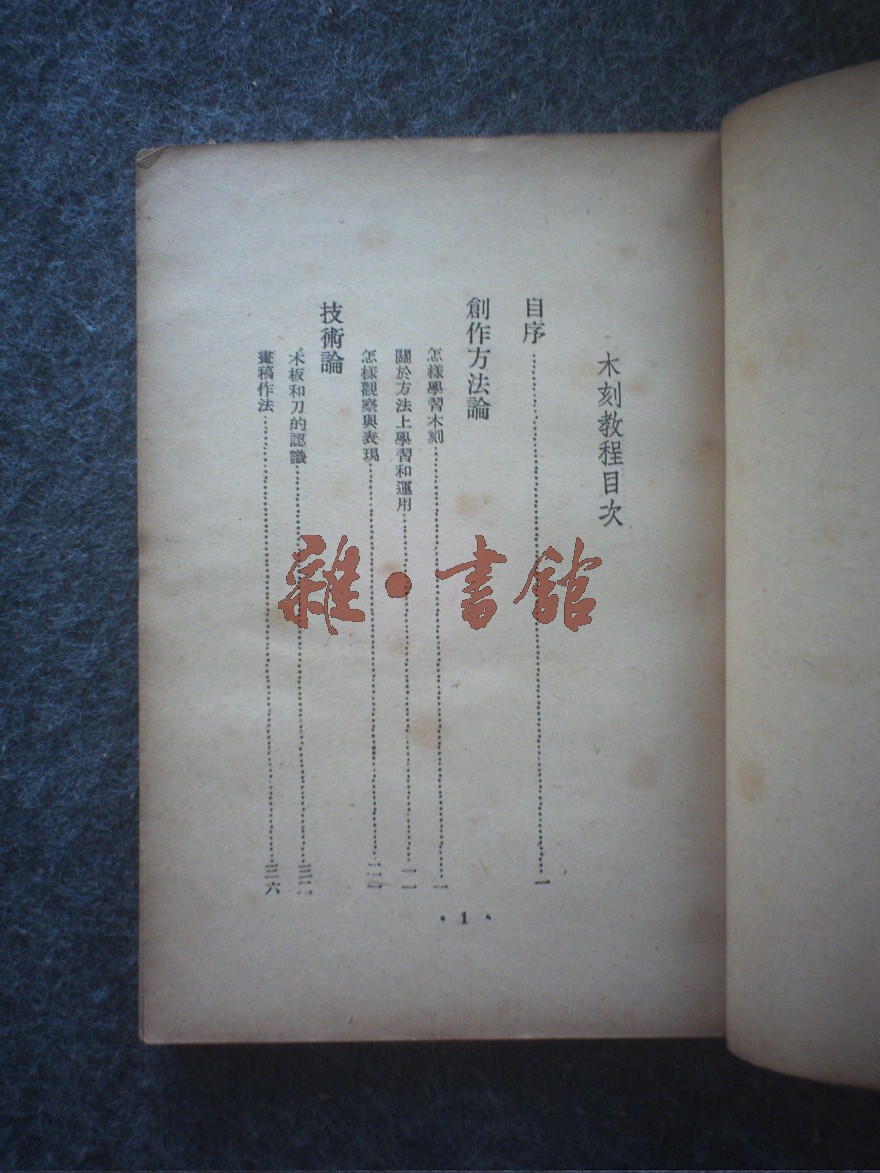 木刻教程目次
自序……一
創作方法論
怎樣學習木刻……一
關於方法上學習和運用……一一
怎樣觀察與表現……二一
技術論
木板和刀的認識……三二
畫稿作法……三六
·1·
雜·書館